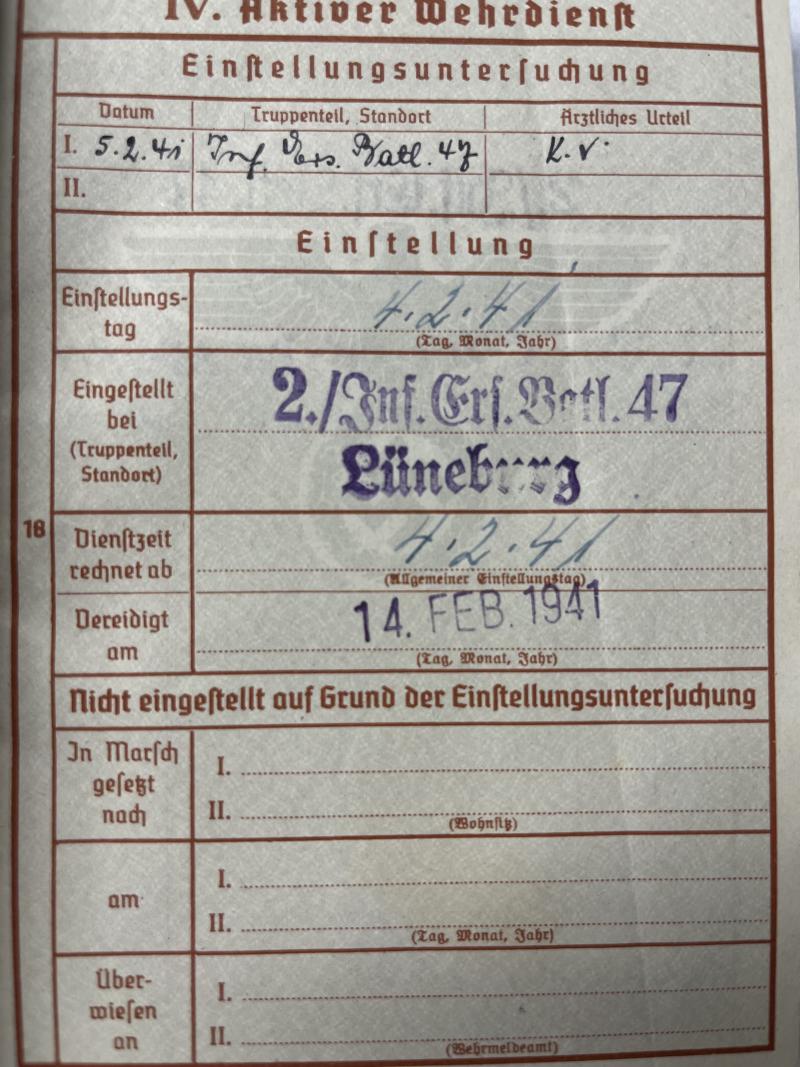 IV. Aktiver Wehrdienst
Einstellungsuntersuchung
Datum Truppenteil, Standort Ärztliches Urteil
I. 5.2.41 Inf. Ers. Batl. 47 K.v.
II.
Einstellung
Einstellungs-
tag
4.2.41
(Tag, Monat, Jahr)
Eingestellt
bei
(Truppenteil,
Standort)
2./Inf. Ers. Batl. 47
Lüneburg
18
Dienstzeit
rechnet ab
4.2.41
(Allgemeiner Einstellungstag)
Vereidigt
am
14. FEB. 1941
(Tag, Monat, Jahr)
Nicht eingestellt auf Grund der Einstellungsuntersuchung
In Marsch
gesetzt
nach
I.
II.
(Wohnsitz)
am
I.
II.
(Tag, Monat, Jahr)
Über-
wiesen
an
I.
II.
(Wehrmeldeamt)